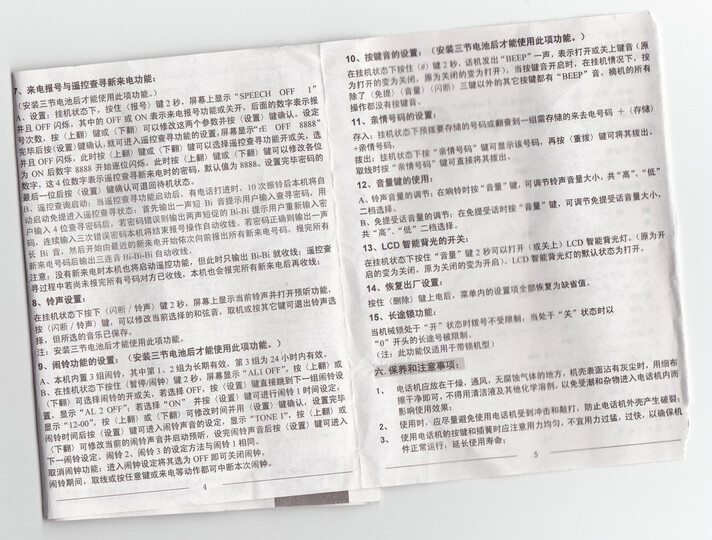 7、来电报号与遥控查寻新来电功能：
（安装三节电池后才能使用此项功能。）
A、设置：挂机状态下，按住（报号）键 2 秒，屏幕上显示“SPEECH OFF 1”
并且 OFF 闪烁，其中的 OFF 或 ON 表示来电报号功能或关开，后面的数字表示报
号次数，按（上翻）键或（下翻）可以修改这两个参数并按（设置）键确认。设定
完毕后按（设置）键确认，就可进入遥控查寻功能的设置，屏幕显示“rE OFF 8888”
并且 OFF 闪烁，此时按（上翻）键或（下翻）键可以选择遥控查寻功能开或关，选
为 ON 后数字 8888 开始逐位闪烁，此时按（上翻）键或（下翻）键可以修改各位
数字，这 4 位数字表示遥控查寻新来电时的密码，默认值为 8888。设置完毕密码的
最后一位后按（设置）键确认可退回待机状态。
B、遥控查询启动：当遥控查寻功能启动后，有电话打进时，10 次振铃后本机将自
动启动免提进入遥控查寻状态：首先输出一声短 Bi 音提示用户输入查寻密码，用
户输入 4 位查寻密码后，若密码错误则输出两声短促的 Bi-Bi 提示用户重新输入密
码，连续输入三次错误密码本机将结束报号操作自动收线。若密码正确则输出一声
长 Bi 音，然后开始由最近的新来电开始依次向前报出所有新来电号码，报完所有
新来电号码后输出三连音 Bi-Bi-Bi 自动收线。
注意：没有新来电时本机也将启动遥控功能，但此时只输出 Bi-Bi 就收线；遥控查
寻过程中若尚未报完所有号码对方已收线，本机也会报完所有新来电后再收线；
8、铃声设置：
在挂机状态下按下（闪断 / 铃声）键 2 秒，屏幕上显示当前铃声并打开预听功能，
按（闪断 / 铃声）键，可以修改当前选择的和弦音，取机或按其它键可退出铃声选
择，但所选的音乐已保存。
注：安装三节电池后才能使用此项功能。
9、闹铃功能的设置：（安装三节电池后才能使用此项功能。）
A、本机内置 3 组闹铃，其中第 1、2 组为长期有效，第 3 组为 24 小时内有效。
B、在挂机状态下按住（暂停/闹钟）键 2 秒，屏幕显示“AL1 OFF”，按（上翻）或
（下翻）可选择闹铃的开或关，若选择 OFF，按（设置）键直接跳到下一组闹铃设
置，显示“AL 2 OFF”，若选择“ON” 并按（设置）键可进行闹铃 1 时间设定，
显示“12-00”，按（上翻）或（下翻）可修改时间并用（设置）键确认，设置完毕
闹铃时间后按（设置）键可进入闹铃声音的设定，显示“TONE 1”，按（上翻）或
（下翻）可修改当前的闹铃声音并启动预听，设完闹铃声音后按（设置）键可进入
下一闹铃设定。闹铃 2、闹铃 3 的设定方法与闹铃 1 相同。
取消闹钟功能：进入闹钟设定将其选为 OFF 即可关闭闹钟。
闹铃期间，取线或按任意键或来电等动作都可中断本次闹钟。
4
10、按键音的设置：（安装三节电池后才能使用此项功能。）
在挂机状态下按住（#）键 2 秒，话机发出“BEEP”一声，表示打开或关上键音（原
为打开的变为关闭，原为关闭的变为打开）。当按键音开启时，在挂机情况下，按
除了（免提）（音量）（闪断）三键以外的其它按键都有“BEEP”音。摘机的所有
操作都没有按键音。
11、亲情号码的设置：
存入：挂机状态下预拨要存储的号码或翻查到一组需存储的来去电号码 ＋（存储）
+亲情号码。
拨出：挂机状态下按“亲情号码”键可显示该号码，再按（重拨）键可将其拨出。
取线时按“亲情号码”键可直接将其拨出。
12、音量键的使用：
A、铃声音量的调节：在响铃时按“音量”键，可调节铃声音量大小，共“高”、“低”
二档选择。
B、免提受话音量的调节：在免提受话时按“音量”键，可调节免提受话音量大小，
共“高”、“低”二档选择。
13、LCD 智能背光的开关：
在挂机状态下按住“音量”键 2 秒可以打开（或关上）LCD 智能背光灯。（原为开
启的变为关闭，原为关闭的变为开启）。LCD 智能背光灯的默认状态为打开。
14、恢复出厂设置：
按住（删除）键上电后，菜单内的设置项全部恢复为缺省值。
15、长途锁功能：
当机械锁处于“开”状态时拨号不受限制，当处于“关”状态时以
“0”开头的长途号被限制。
（注：此功能仅适用于带锁机型）
六. 保养和注意事项：
1、 电话机应放在干燥，通风，无腐蚀气体的地方，机壳表面沾有灰尘时，用细布
擦干净即可，不得用清洁液及其他化学溶剂，以免受潮和杂物进入电话机内而
影响使用效果；
2、 使用时，应尽量避免使用电话机受到冲击和敲打，防止电话机外壳产生破裂；
3、 使用电话机的按键和插簧时应注意用力均匀，不宜用力过猛，过快，以确保机
件正常运行，延长使用寿命；
5